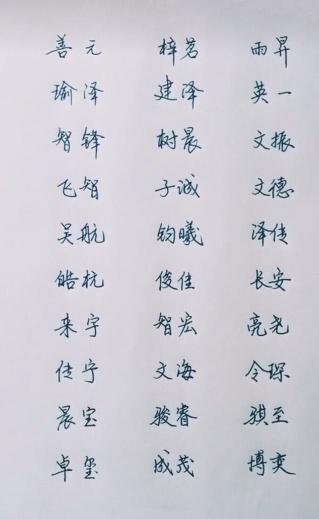 善元 梓茗 雨昇
瑜泽 建泽 英一
智锋 树晨 文振
飞智 子诚 文德
吴航 钧曦 泽传
皓杭 俊佳 长安
来宇 智宏 亮尧
传宁 文海 令琛
晨宝 骏睿 骐至
卓玺 成茂 博奕